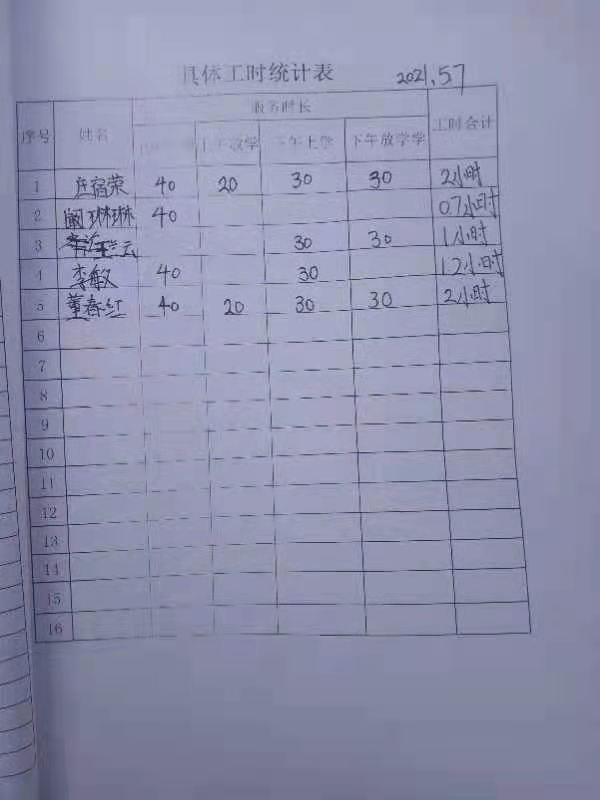 具体工时统计表 2021.5.7
序号 姓名 服务时长 工时合计
上午放学 下午上学 下午放学学
1 庄宿荣 40 20 30 30 2小时
2 阚琳琳 40 0.7小时
3 30 30 1小时
4 李敏 40 30 1.2小时
5 董春红 40 20 30 30 2小时
6
7
8
9
10
11
12
13
14
15
16